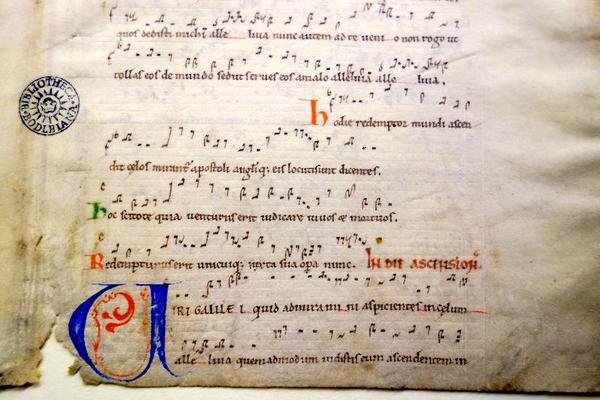 quos dedisti michi alle luia nunc autem ad te venio non rogo ut
tollas eos de mundo sed ut serves eos a malo alleluia alle luia.
hodie redemptor mundi ascen
dit celos apostoli angliq; eis locuti sunt dicentes.
hoc scitote quia venturus erit iudicare vivos & mortuos.
Redempturus erit unicuiq; iuxta sua opa nunc. IN DIE ASCENSION
VIRI GALILEI quid admiramini aspicientes in celum
alle luia quemadmodum vidistis eum ascendentem in
BIBLIOTHECA BODLEIANA